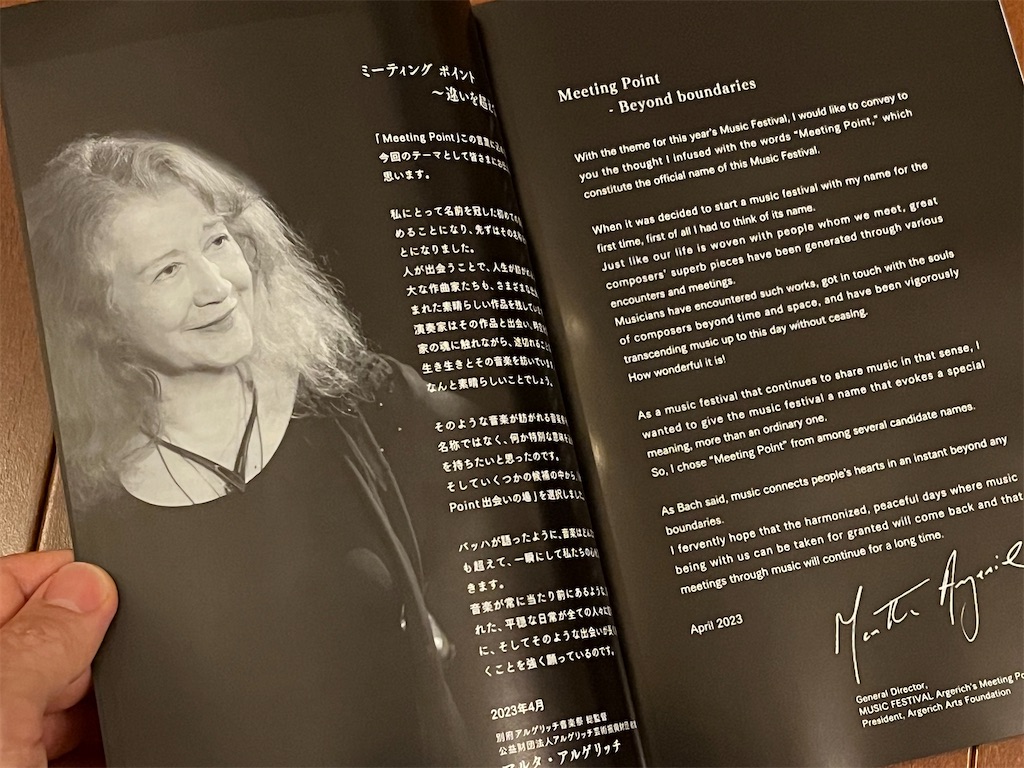 ミーティング ポイント
～違いを超え
「Meeting Point」この言葉に
今回のテーマとして皆さまに
思います。
私にとって名前を冠した初めての
めることになり、先ずはその名称
とになりました。
人が出会うことで、人生が紡がれ
大な作曲家たちも、さまざまな
まれた素晴らしい作品を残してい
演奏家はその作品と出会い、時空
家の魂に触れながら、途切れること
生き生きとその音楽を紡いでい
なんと素晴らしいことでしょう。
そのような音楽が紡がれる音楽
名称ではなく、何か特別な意味
を持ちたいと思ったのです。
そしていくつかの候補の中から、
Point 出会いの場」を選択しました
バッハが語ったように、音楽はどん
も超えて、一瞬にして私たちの心
きます。
音楽が常に当たり前にあるように
れた、平穏な日常が全ての人々に
に、そしてそのような出会いが
くことを強く願っているのです。
2023年4月
別府アルゲリッチ音楽祭 総監督
公益財団法人アルゲリッチ芸術振興財団
アルタ・アルゲリッチ
Meeting Point
- Beyond boundaries
With the theme for this year's Music Festival, I would like to convey to
you the thought I infused with the words "Meeting Point," which
constitute the official name of this Music Festival.
When it was decided to start a music festival with my name for the
first time, first of all I had to think of its name.
Just like our life is woven with people whom we meet, great
composers' superb pieces have been generated through various
encounters and meetings.
Musicians have encountered such works, got in touch with the souls
of composers beyond time and space, and have been vigorously
transcending music up to this day without ceasing.
How wonderful it is!
As a music festival that continues to share music in that sense, I
wanted to give the music festival a name that evokes a special
meaning, more than an ordinary one.
So, I chose "Meeting Point" from among several candidate names.
As Bach said, music connects people's hearts in an instant beyond any
boundaries.
I fervently hope that the harmonized, peaceful days where music
being with us can be taken for granted will come back and that
meetings through music will continue for a long time.
April 2023
Martha Argerich
General Director,
MUSIC FESTIVAL Argerich's Meeting Po
President, Argerich Arts Foundation